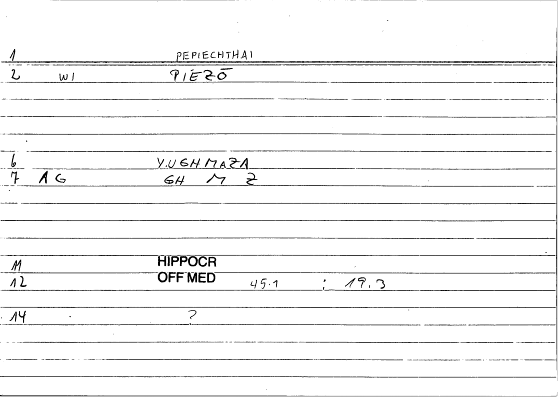 1 PEPIECHTHAI
2 WI PIEZŌ
6 Y.UGHMAZA
7 AG GH M Z
11 HIPPOCR
12 OFF MED 45.1 : 19.3
14 ?